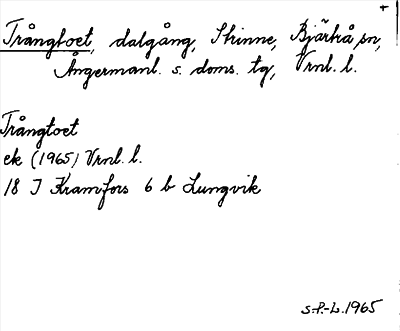 +
Trångtoet, dalgång, Skinne, Bjärtrå sn,
Ångermanl. s. doms. tg, Vrnl. l.
Trångtoet
ek (1965) Vrnl. l.
18 I Kramfors 6 b Lungvik
S-P.-L. 1965